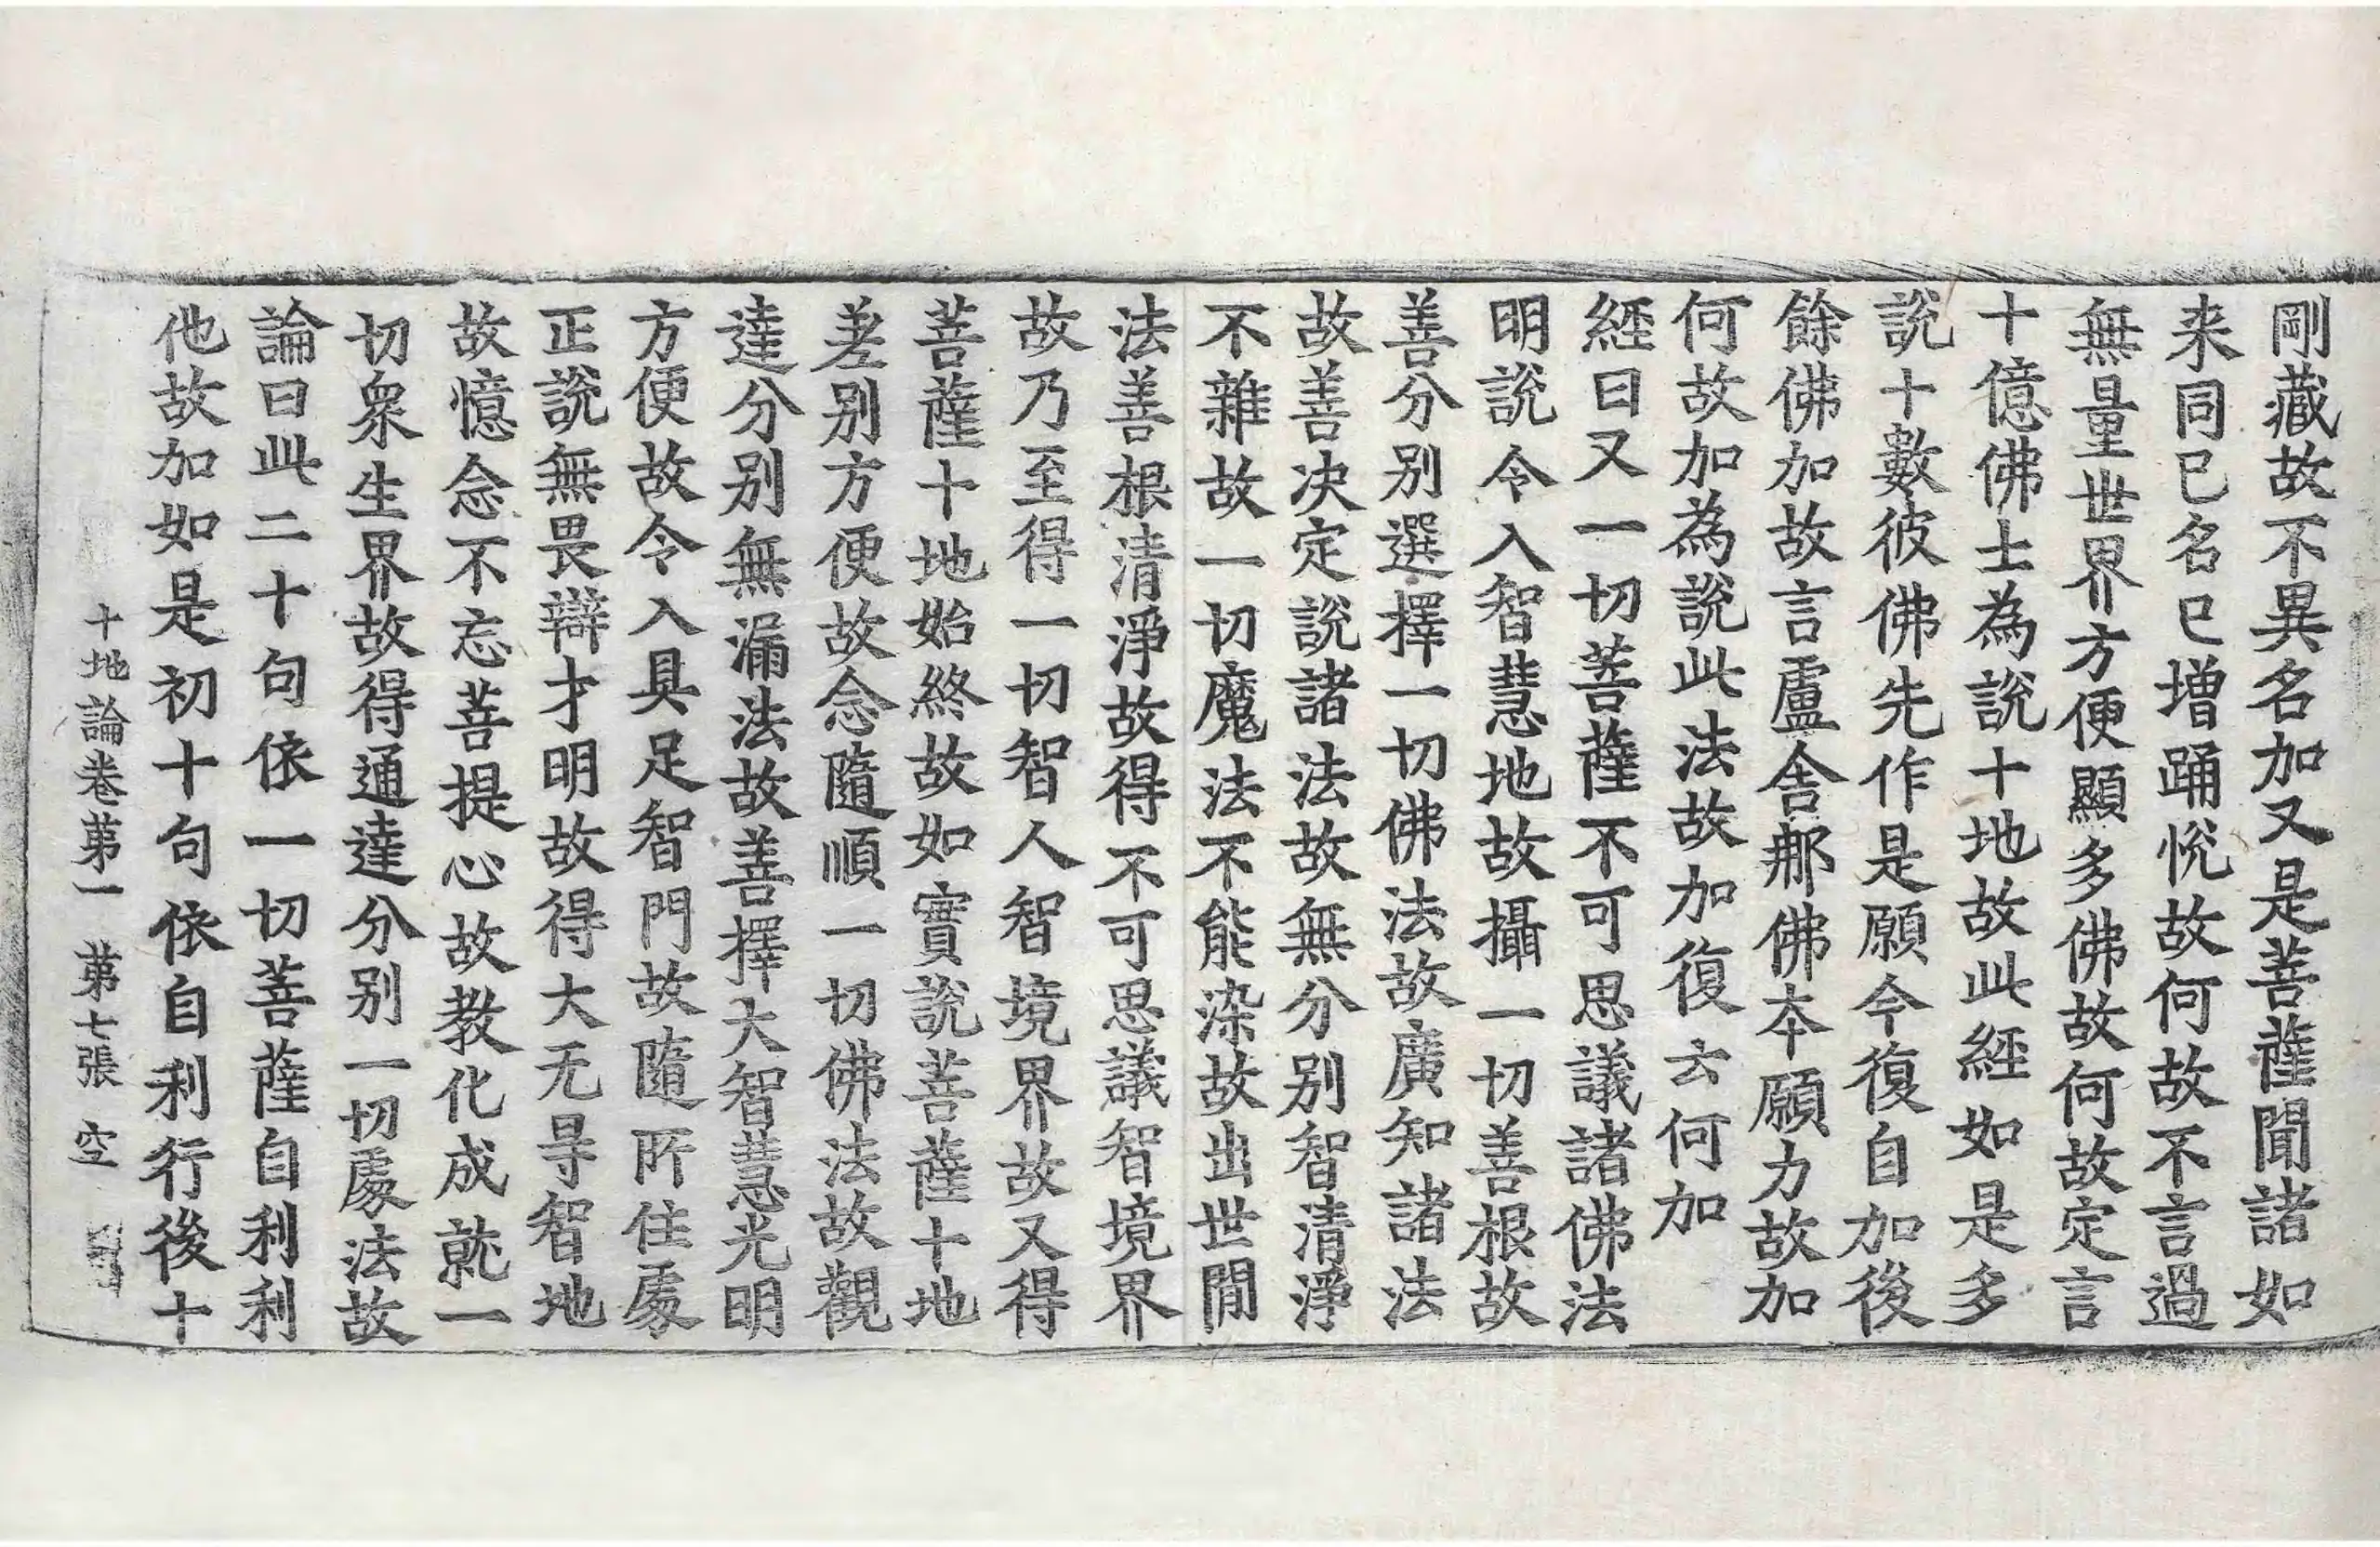 剛藏故不異名加又是菩薩聞諸如
来同已名已增踊悅故何故不言過
無量世界方便顯多佛故何故定言
十億佛士為說十地故此經如是多
說十數彼佛先作是願今復自加後
餘佛加故言盧舍那佛本願力故加
何故加為說此法故加復云何加
經曰又一切菩薩不可思議諸佛法
明說令入智慧地故攝一切善根故
善分别選擇一切佛法故廣知諸法
故善决定說諸法故無分别智清淨
不雜故一切魔法不能染故出世閒
法善根清淨故得不可思議智境界
故乃至得一切智人智境界故又得
菩薩十地始終故如實說菩薩十地
差别方便故念隨順一切佛法故觀
達分别無漏法故善擇大智慧光明
方便故令入具足智門故隨所住處
正說無畏辯才明故得大无㝵智地
故憶念不忘菩提心故教化成就一
切衆生界故得通達分别一切處法故
論曰此二十句依一切菩薩自利利
他故加如是初十句依自利行後十
十地論卷苐一　苐七張　空